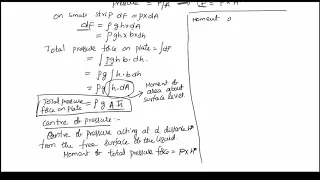 pressure = F/A → F = P × A
on small strip dF = p x dA
dF = ρghxdA
= ρgh x b.dh.
Total pressure force on plate = ∫dF
= ∫ρgh.b.dh.
= ρg ∫h.b.dh
= ρg ∫h.dA
Moment of area about surface level.
Total pressure force on plate = ρg A h̄
Centre of pressure :-
Centre of pressure acting at a distance h*
from the free surface of the liquid.
Moment of total pressure force = F x h*
Moment o